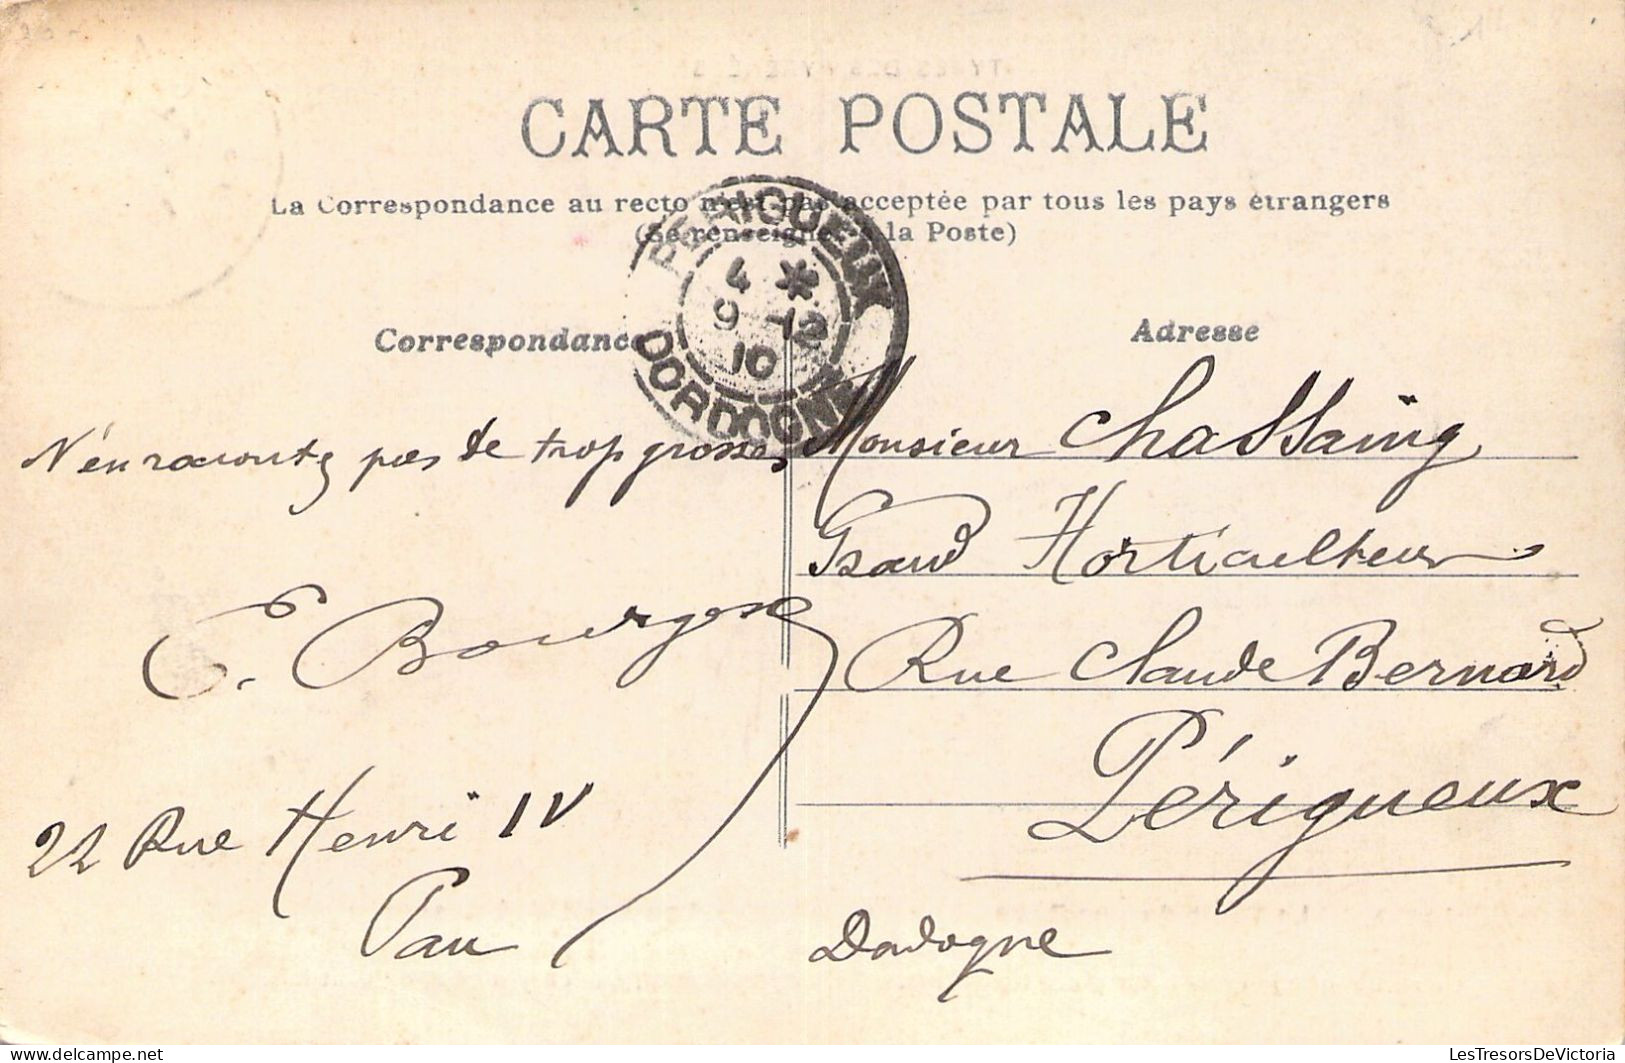 CARTE POSTALE
La Correspondance au recto n'est pas acceptée par tous les pays étrangers
(Se renseigner à la Poste)
PÉRIGUEUX
4 *
9 -12
10
DORDOGNE
Correspondance
Adresse
N'en racontez pas de trop grosses
E. Bourgos
22 Rue Henri IV
Pau
Monsieur Chassaing
Grand Horticulteur
Rue Claude Bernard
Périgueux
Dordogne
LesTresorsDeVictoria